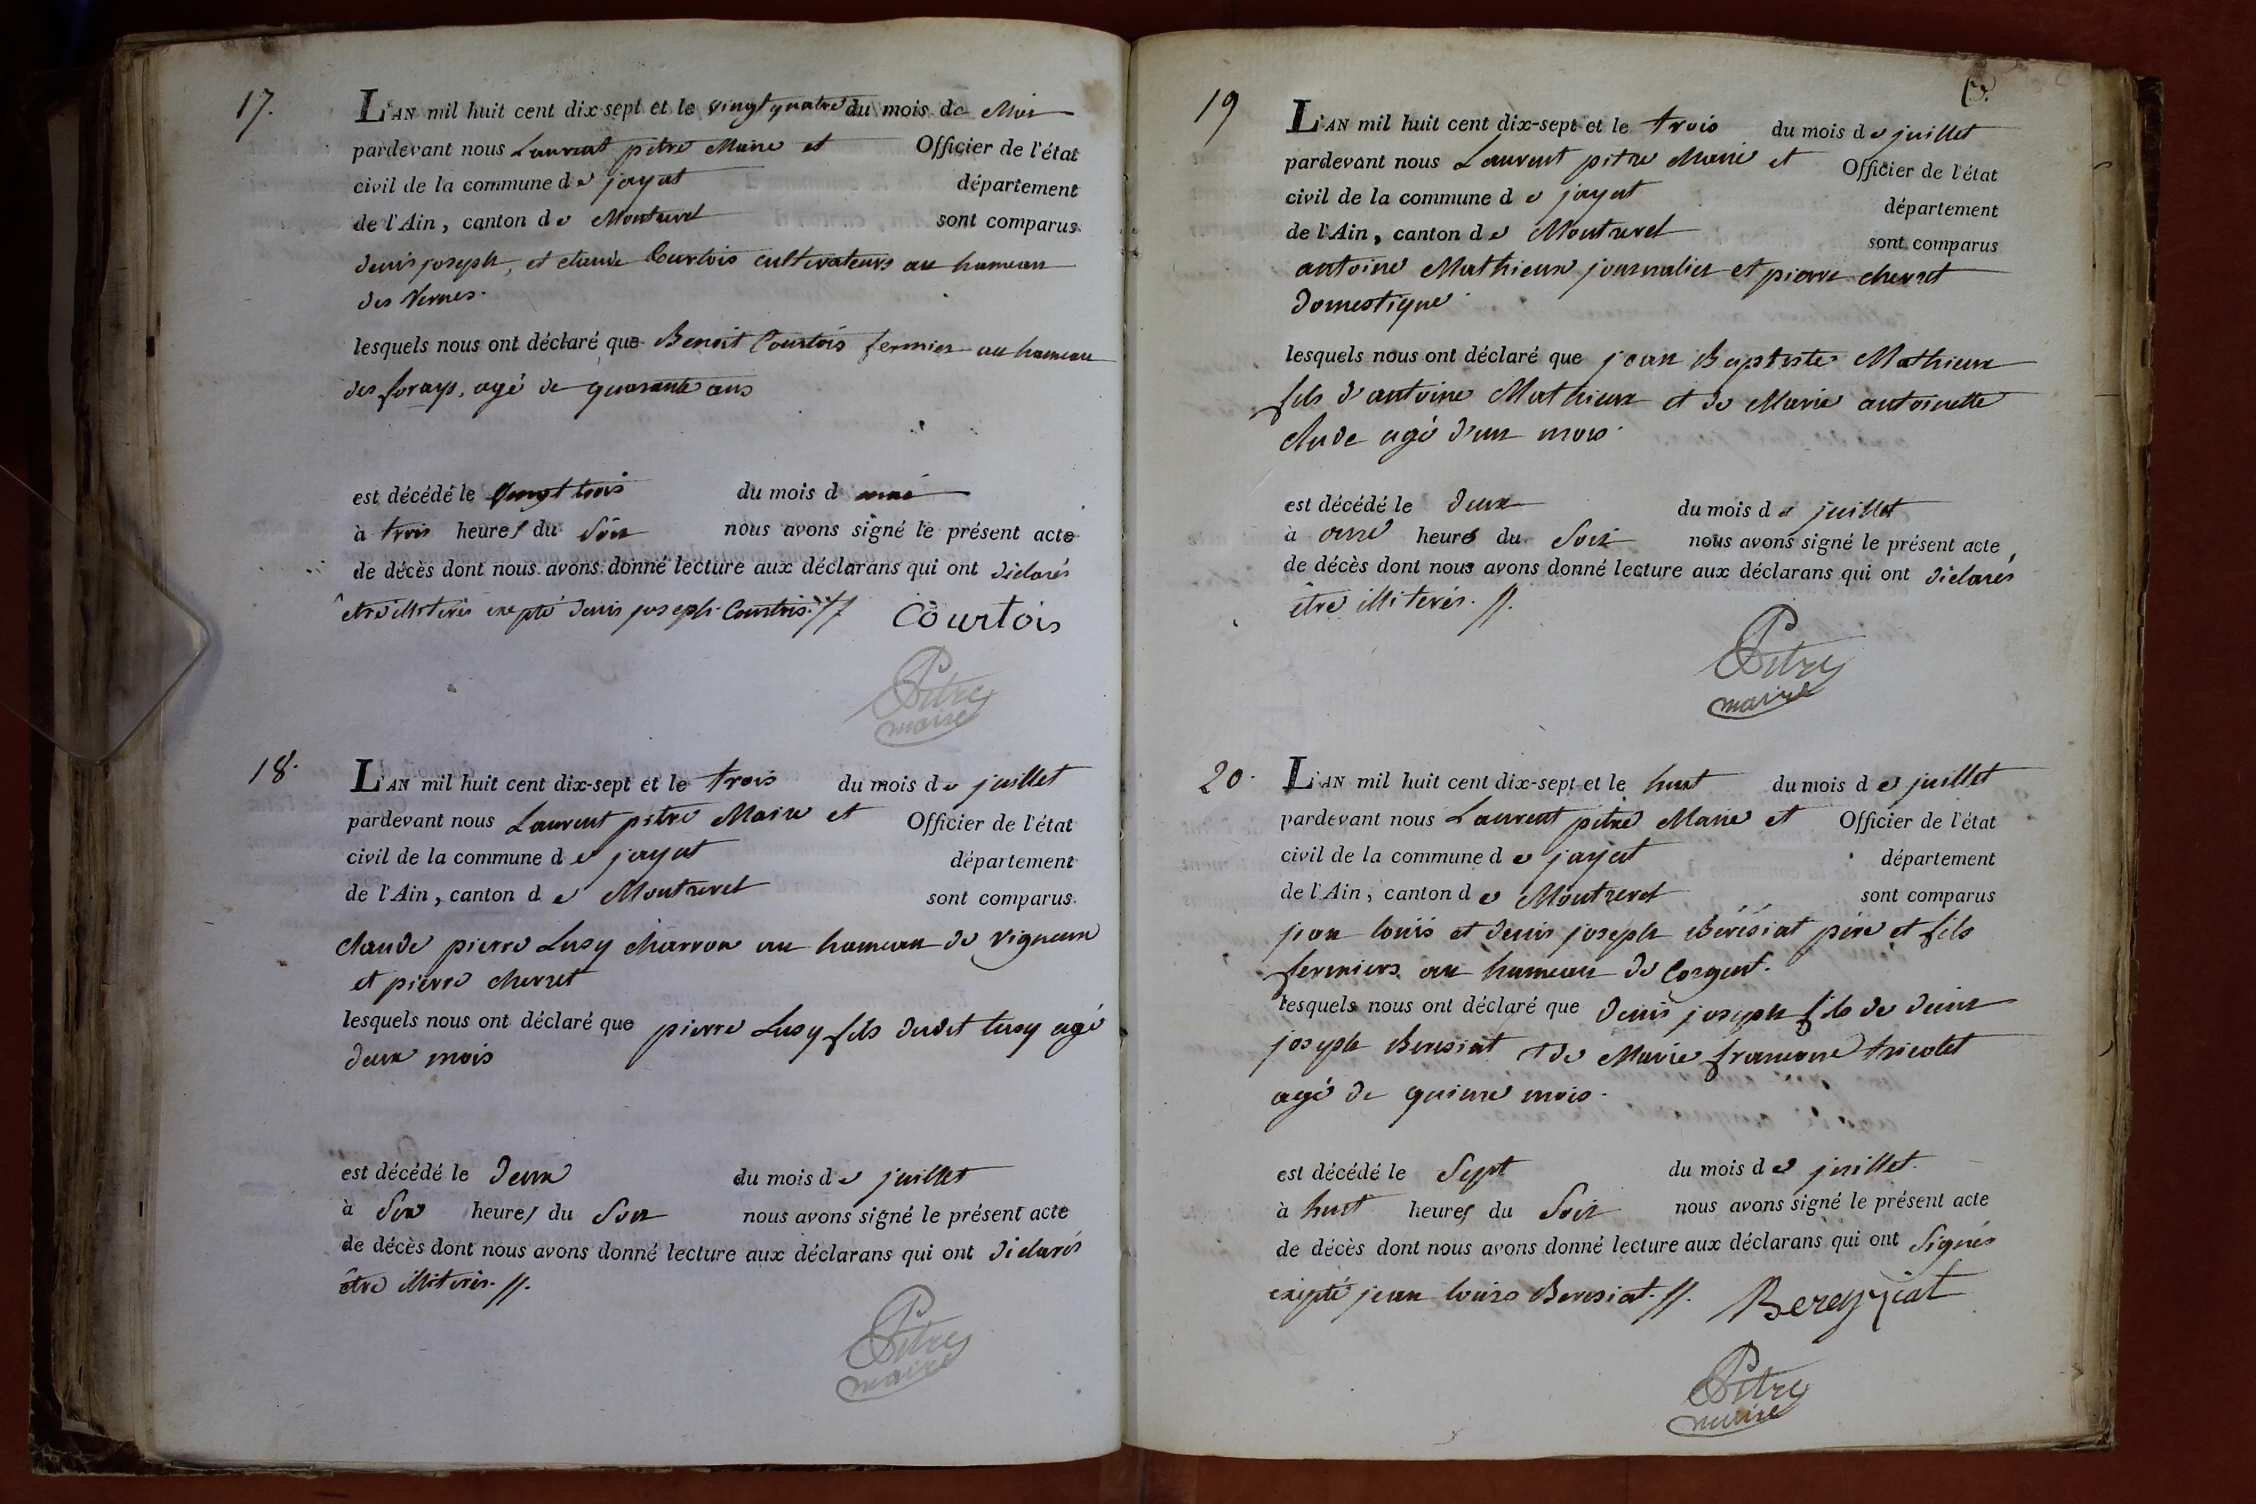 17.
L'AN mil huit cent dix-sept et le vingt quatre du mois de Mai
pardevant nous Laurent pitre Maire et Officier de l'état
civil de la commune de jayat département
de l'Ain, canton de Montrevel sont comparus
denis joseph, et etienne Courtois cultivateurs au hameau
des Vernes.
lesquels nous ont déclaré que Benoit Courtois fermier au hameau
des forays, agé de quarante ans
est décédé le vingt trois du mois d mai
à trois heures du Soir nous avons signé le présent acte
de décès dont nous avons donné lecture aux déclarans qui ont déclarés
être illiterés exepté denis joseph Courtois.//. Courtois
Pitre
maire
18.
L'AN mil huit cent dix-sept et le trois du mois de juillet
pardevant nous Laurent pitre Maire et Officier de l'état
civil de la commune de jayat département
de l'Ain, canton de Montrevel sont comparus
claude pierre Lusy charron au hameau de vigneux
et pierre chevret
lesquels nous ont déclaré que pierre Lusy fils dudit lusy agé
deux mois
est décédé le deux du mois de juillet
à Six heures du Soir nous avons signé le présent acte
de décès dont nous avons donné lecture aux déclarans qui ont déclarés
être illiterés.//.
Pitre
maire
19
L'AN mil huit cent dix-sept et le trois du mois de juillet
pardevant nous Laurent pitre Maire et Officier de l'état
civil de la commune de jayat département
de l'Ain, canton de Montrevel sont comparus
antoine Mathieux journalier et pierre chevret
domestique
lesquels nous ont déclaré que jean Baptiste Mathieux
fils d'antoine Mathieux et de Marie antoinette
clude agé d'un mois.
est décédé le deux du mois de juillet
à onze heures du Soir nous avons signé le présent acte
de décès dont nous avons donné lecture aux déclarans qui ont déclarés
être illiterés.//.
Pitre
maire
20.
L'AN mil huit cent dix-sept et le huit du mois de juillet
pardevant nous Laurent pitre Maire et Officier de l'état
civil de la commune de jayat département
de l'Ain, canton de Montrevel sont comparus
jean louis et denis joseph Bérésiat père et fils
fermiers au hameau de Corgent.
lesquels nous ont déclaré que denis joseph fils de denis
joseph Beresiat et de Marie francoise tricolet
agé de quinze mois.
est décédé le Sept du mois de juillet.
à huit heures du Soir nous avons signé le présent acte
de décès dont nous avons donné lecture aux déclarans qui ont Signés
exepté jean louis Beresiat.//. Bereyziat
Pitre
maire